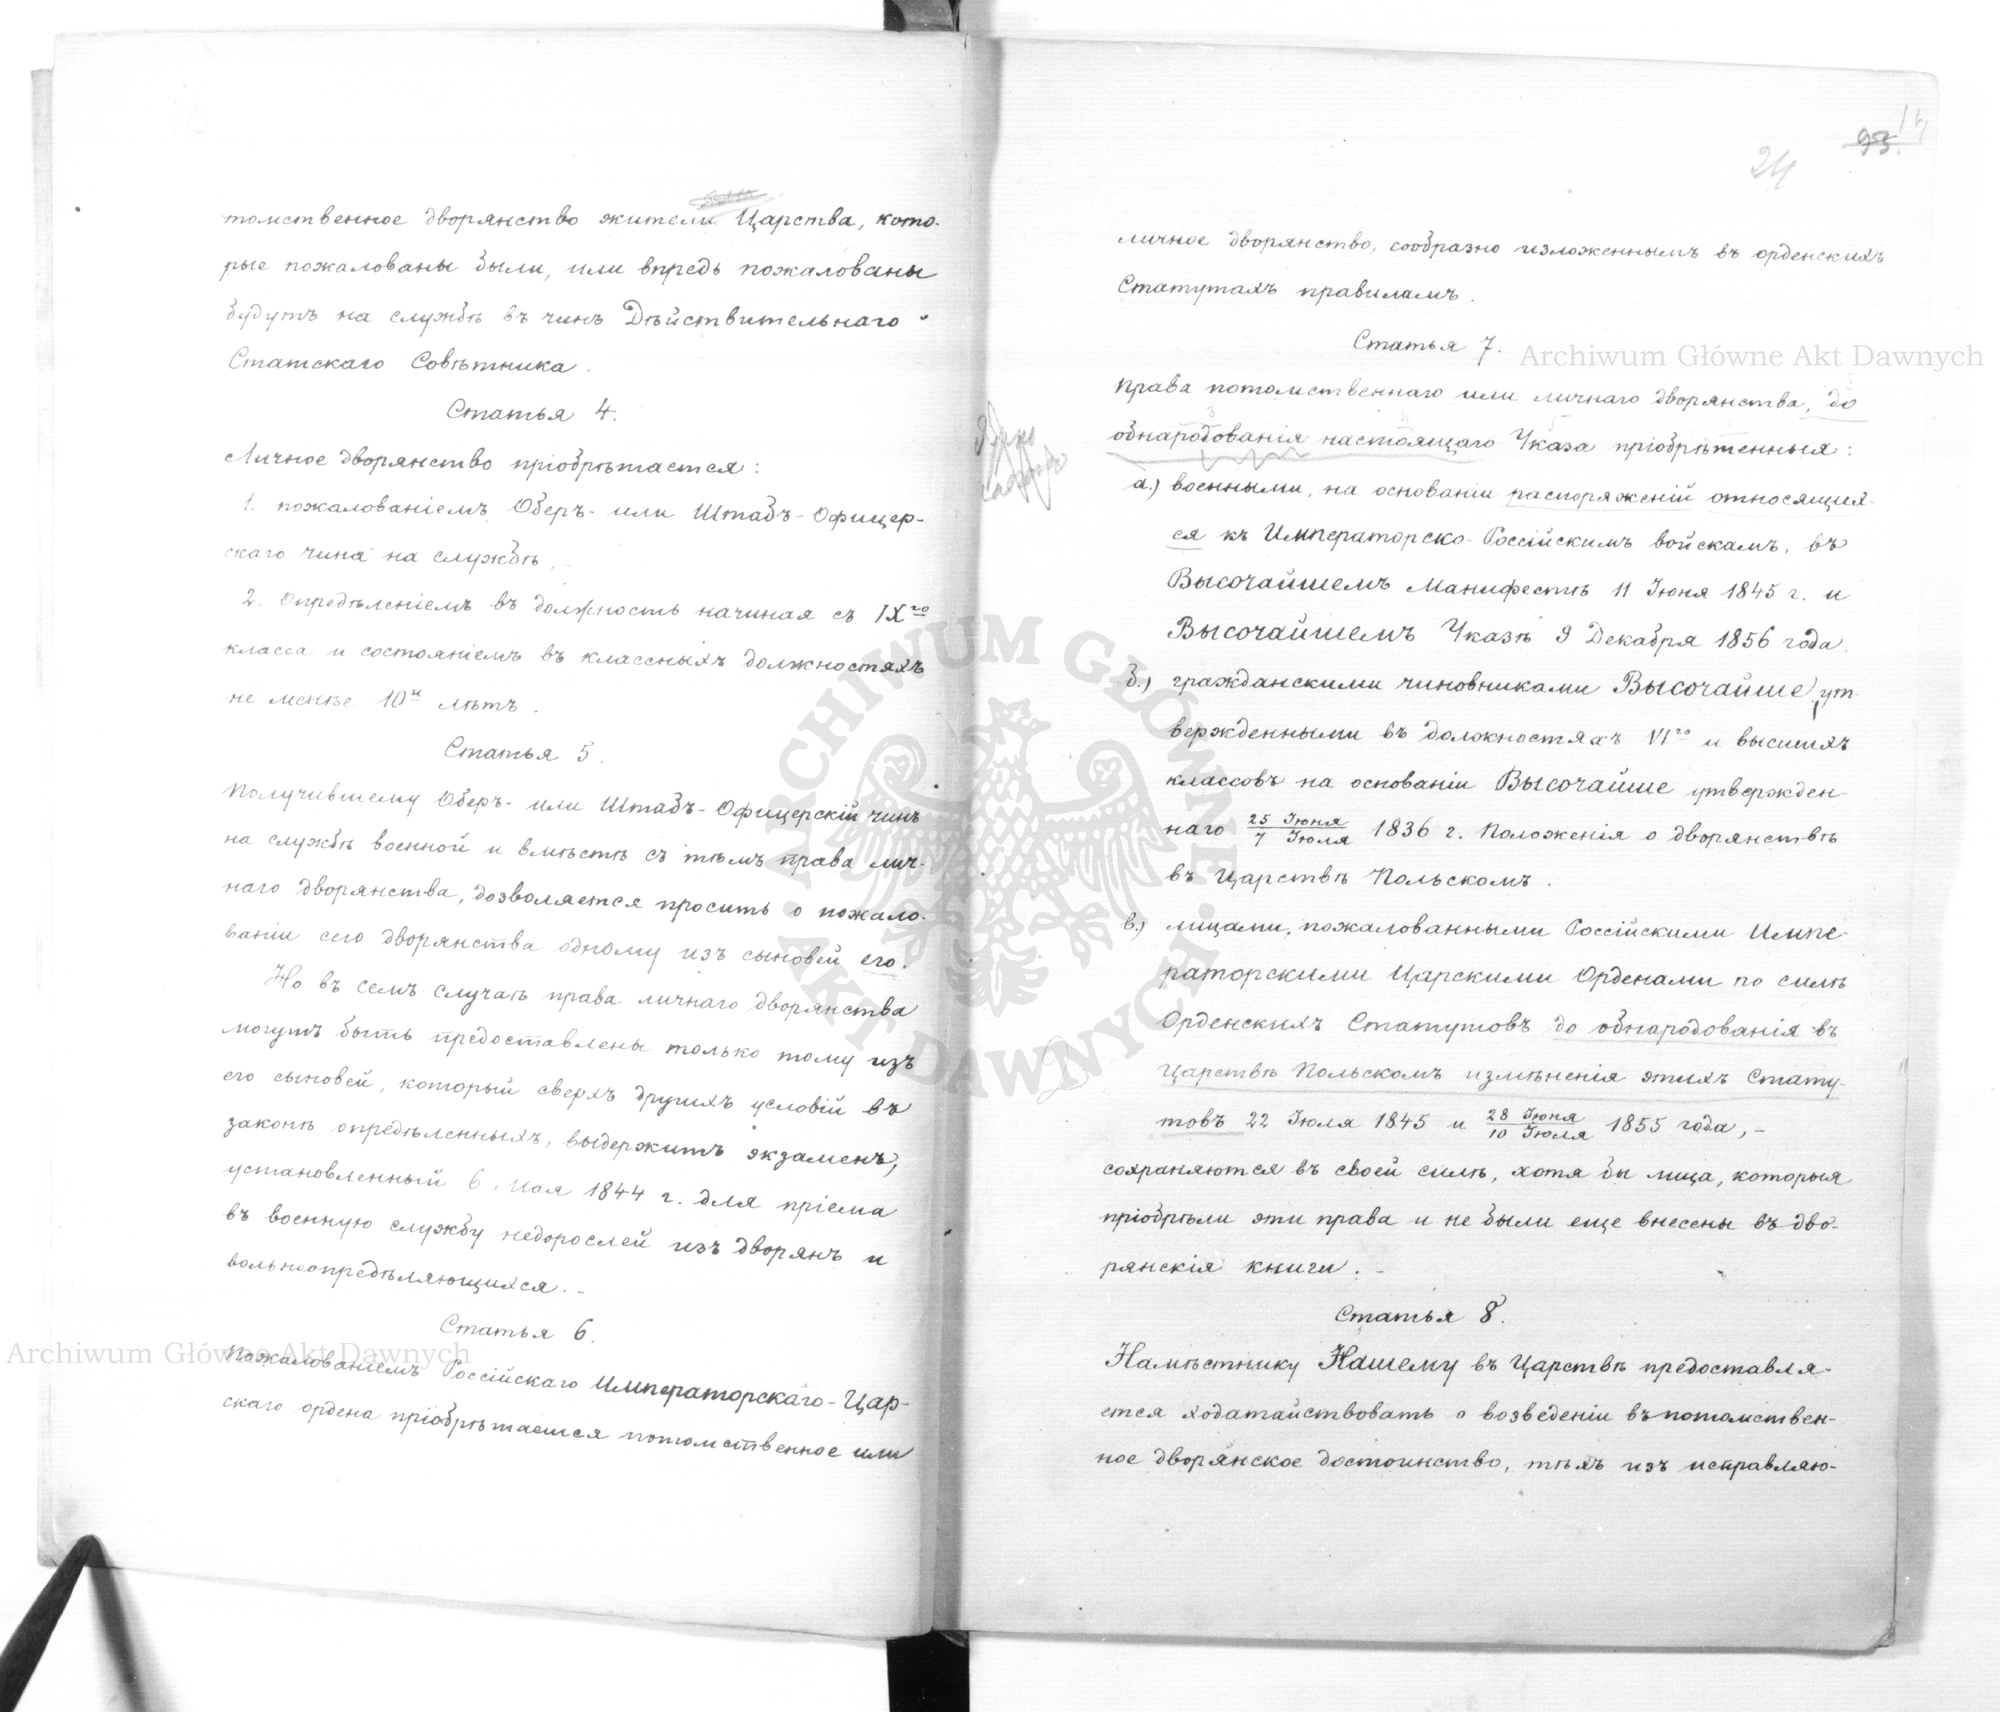 томственное дворянство жители Царства, кото-
рые пожалованы были, или впредь пожалованы
будутъ на службѣ въ чинъ Дѣйствительнаго
Статскаго Совѣтника.
Статья 4.
Личное дворянство пріобрѣтается:
1. пожалованіемъ Оберъ- или Штабъ-Офицер-
скаго чина на службѣ,
2. Опредѣленіемъ въ должность начиная съ IXго
класса и состояніемъ въ классныхъ должностяхъ
не менѣе 10и лѣтъ.
Статья 5.
Получившему Оберъ- или Штабъ-Офицерскій чинъ
на службѣ военной и вмѣстѣ съ тѣмъ права лич-
наго дворянства, дозволяется просить о пожало-
ваніи сего дворянства одному изъ сыновей его.
Но въ семъ случаѣ права личнаго дворянства
могутъ быть предоставлены только тому изъ
его сыновей, который сверхъ другихъ условій въ
законѣ опредѣленныхъ, выдержитъ экзаменъ,
установленный 6 Мая 1844 г. для пріема
въ военную службу недорослей изъ дворянъ и
вольноопредѣляющихся. -
Статья 6.
Пожалованіемъ Россійскаго Императорскаго-Цар-
скаго ордена пріобрѣтается потомственное или
95.
24
личное дворянство, сообразно изложеннымъ въ орденскихъ
Статутахъ правиламъ.
Статья 7.
Права потомственнаго или личнаго дворянства, до
обнародованія настоящаго Указа пріобрѣтенныя:
а.) военными, на основаніи распоряженій относящих-
ся къ Императорско-Россійскимъ войскамъ, въ
Высочайшемъ Манифестѣ 11 Іюня 1845 г. и
Высочайшемъ Указѣ 9 Декабря 1856 года.
б.) гражданскими чиновниками Высочайше ут-
вержденными въ должностяхъ VIго и высшихъ
классовъ на основаніи Высочайше утвержден-
наго 25 Іюня / 7 Іюля 1836 г. Положенія о дворянствѣ
въ Царствѣ Польскомъ.
в.) лицами, пожалованными Россійскими Импе-
раторскими Царскими Орденами по силѣ
Орденскихъ Статутовъ до обнародованія въ
Царствѣ Польскомъ измѣненія этихъ Стату-
товъ 22 Іюля 1845 и 28 Іюня / 10 Іюля 1855 года, -
сохраняются въ своей силѣ, хотя бы лица, которыя
пріобрѣли эти права и не были еще внесены въ дво-
рянскія книги. -
Статья 8.
Намѣстнику Нашему въ Царствѣ предоставля-
ется ходатайствовать о возведеніи въ потомствен-
ное дворянское достоинство, тѣхъ изъ исправляю-
Archiwum Główne Akt Dawnych
Archiwum Główne Akt Dawnych
ARCHIWUM GŁÓWNE AKT DAWNYCH